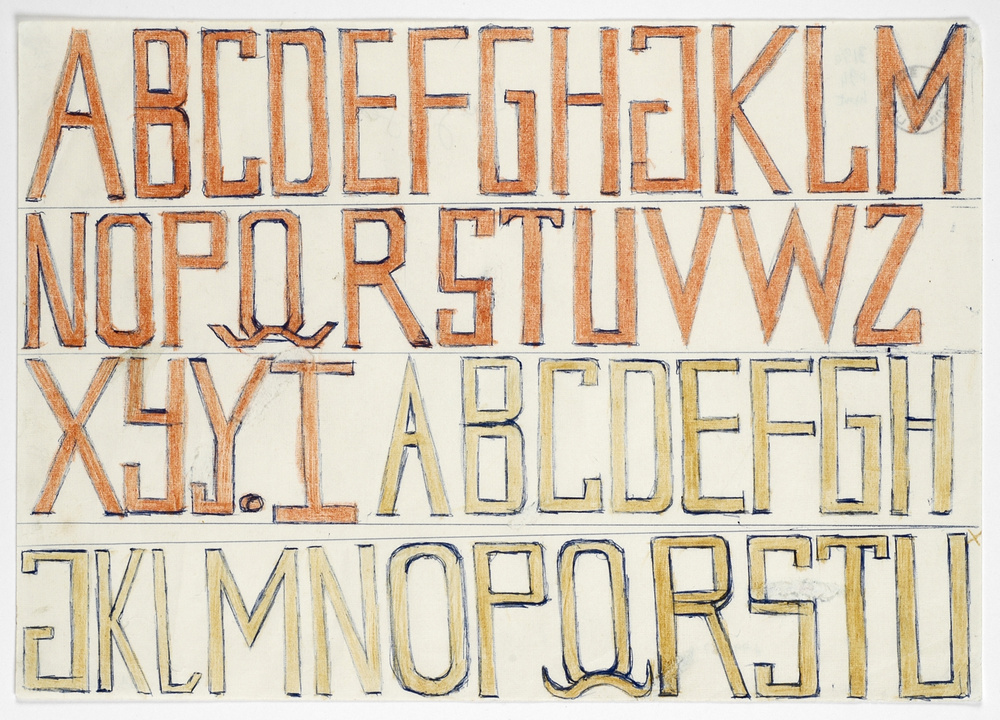 ABCDEFGHJKLM
NOPQRSTUVWZ
XYY.I ABCDEFGH
JKLMNOPQRSTU